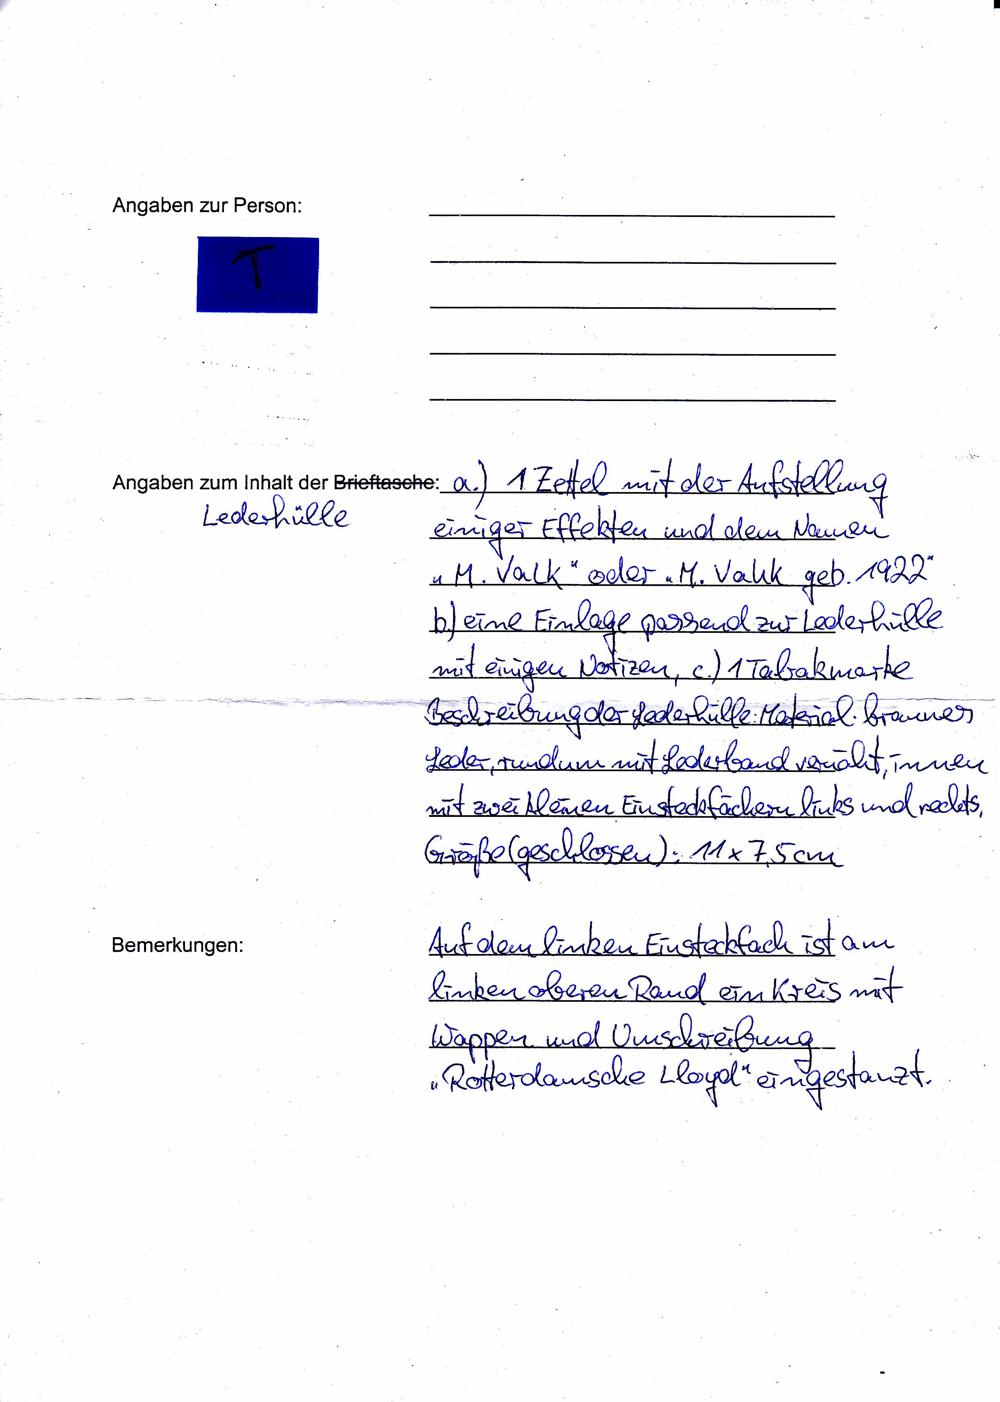 Angaben zur Person:
T
Angaben zum Inhalt der Brieftasche: a.) 1 Zettel mit der Aufstellung
Lederhülle
einiger Effekten und dem Namen
„M. Valk" oder „M. Vahk geb. 1922"
b) eine Einlage passend zur Lederhülle
mit einigen Notizen, c.) 1 Tabakmarke
Beschreibung der Lederhülle: Material: braunes
Leder, rundum mit Lederband vernäht, innen
mit zwei kleinen Einsteckfächern links und rechts,
Größe (geschlossen): 11 x 7,5 cm
Bemerkungen:
Auf dem linken Einsteckfach ist am
linken oberen Rand ein Kreis mit
Wappen und Umschreibung
„Rotterdamsche Lloyd" eingestanzt.